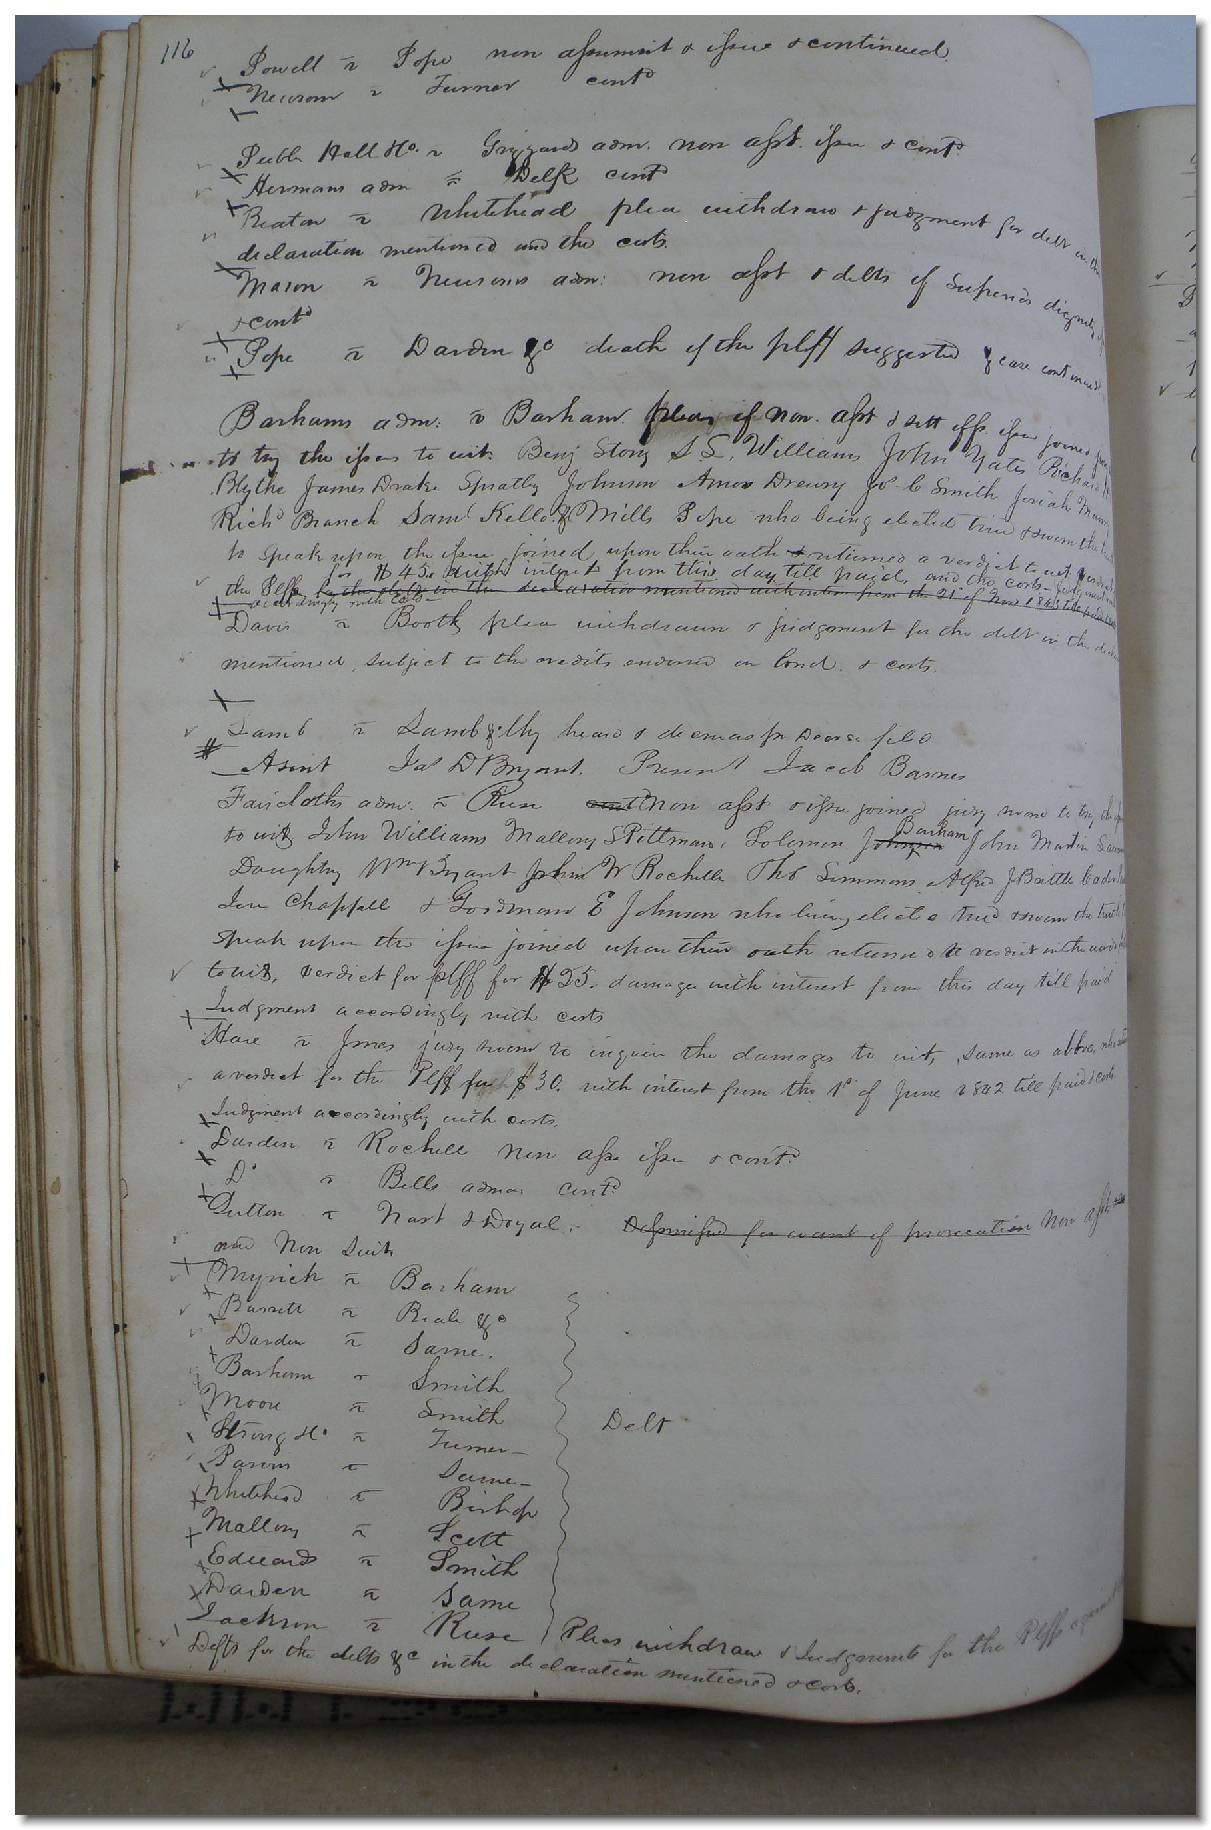 116
Powell vs Pope non assumsit & issue & continued
Newsom vs Turner contd
Peebles Hall &c. vs Griggard's adm. non asst. issue & contd
Hermans adm vs Delk contd
Beaton vs Whitehead plea withdrawn & judgment for debt in the
declaration mentioned and the costs.
Mason vs Newsoms adm: non asst & debts of superior dignity
& contd
Pope vs Darden &c death of the plff suggested & case continued
Barhams adm: vs Barham. pleas of non. asst & sett off. issue joined
to try the issues to wit. Benj Story S S. Williams John Yates Richard
Blythe James Drake Spratley Johnson Amos Drewry Jos. C Smith Josiah
Richd Branch Saml Kello. & Mills Pope who being elected tried & sworn the
to speak upon the issue joined upon their oath returned a verdict to wit
the Plff for $45. with interest from this day till paid, and the costs-
for the debt in the declaration mentioned with interest from the 21st of Nov 1843 till paid
accordingly with costs-
Davis vs Booth plea withdrawn & judgment for the debt in the
mentioned, subject to the credits endorsed on bond. & costs.
Lamb vs Lamb &c. thy heard & decree as pr Decree filed
Absent Jas D Bryant. Present Jacob Barnes
Faircloths adm: vs Ruse contd non asst & issue joined jury sworn to try the
to wit John Williams Mallory S Pittman, Solomon Johnson Barham John Martin
Daughtry Wm Bryant John W Rochelle Thos Simmons Alfred J Brittle
Chappell & Goodman E Johnson who being elected tried & sworn the truth
speak upon the issue joined upon their oath returned a verdict in the words
to wit, verdict for plff for $25. damages with interest from this day till paid
Judgment accordingly with costs
Hare vs Jones jury sworn to inquire the damages to wit, same as above,
a verdict for the Plff for $30. with interest from the 1st of June 1842 till paid & costs
Judgment accordingly with costs.
Darden vs Rochelle non asst issue & contd
Do vs Bells admr. contd
Sutton vs Hart & Doyal- Dismissed for want of prosecution Non asst
and Non Suit
Myrick vs Barham
Barrett vs Beale &c
Darden vs Same.
Barham vs Smith
Moore vs Smith
Strong &c vs Turner- Debt
Barnes vs Same-
Whitehead vs Bishop
Mallory vs Scott
Edwards vs Smith
Darden vs Same
Jackson vs Ruse Pleas withdrawn & Judgments for the Plffs against
Defts for the debts &c in the declaration mentioned & costs.